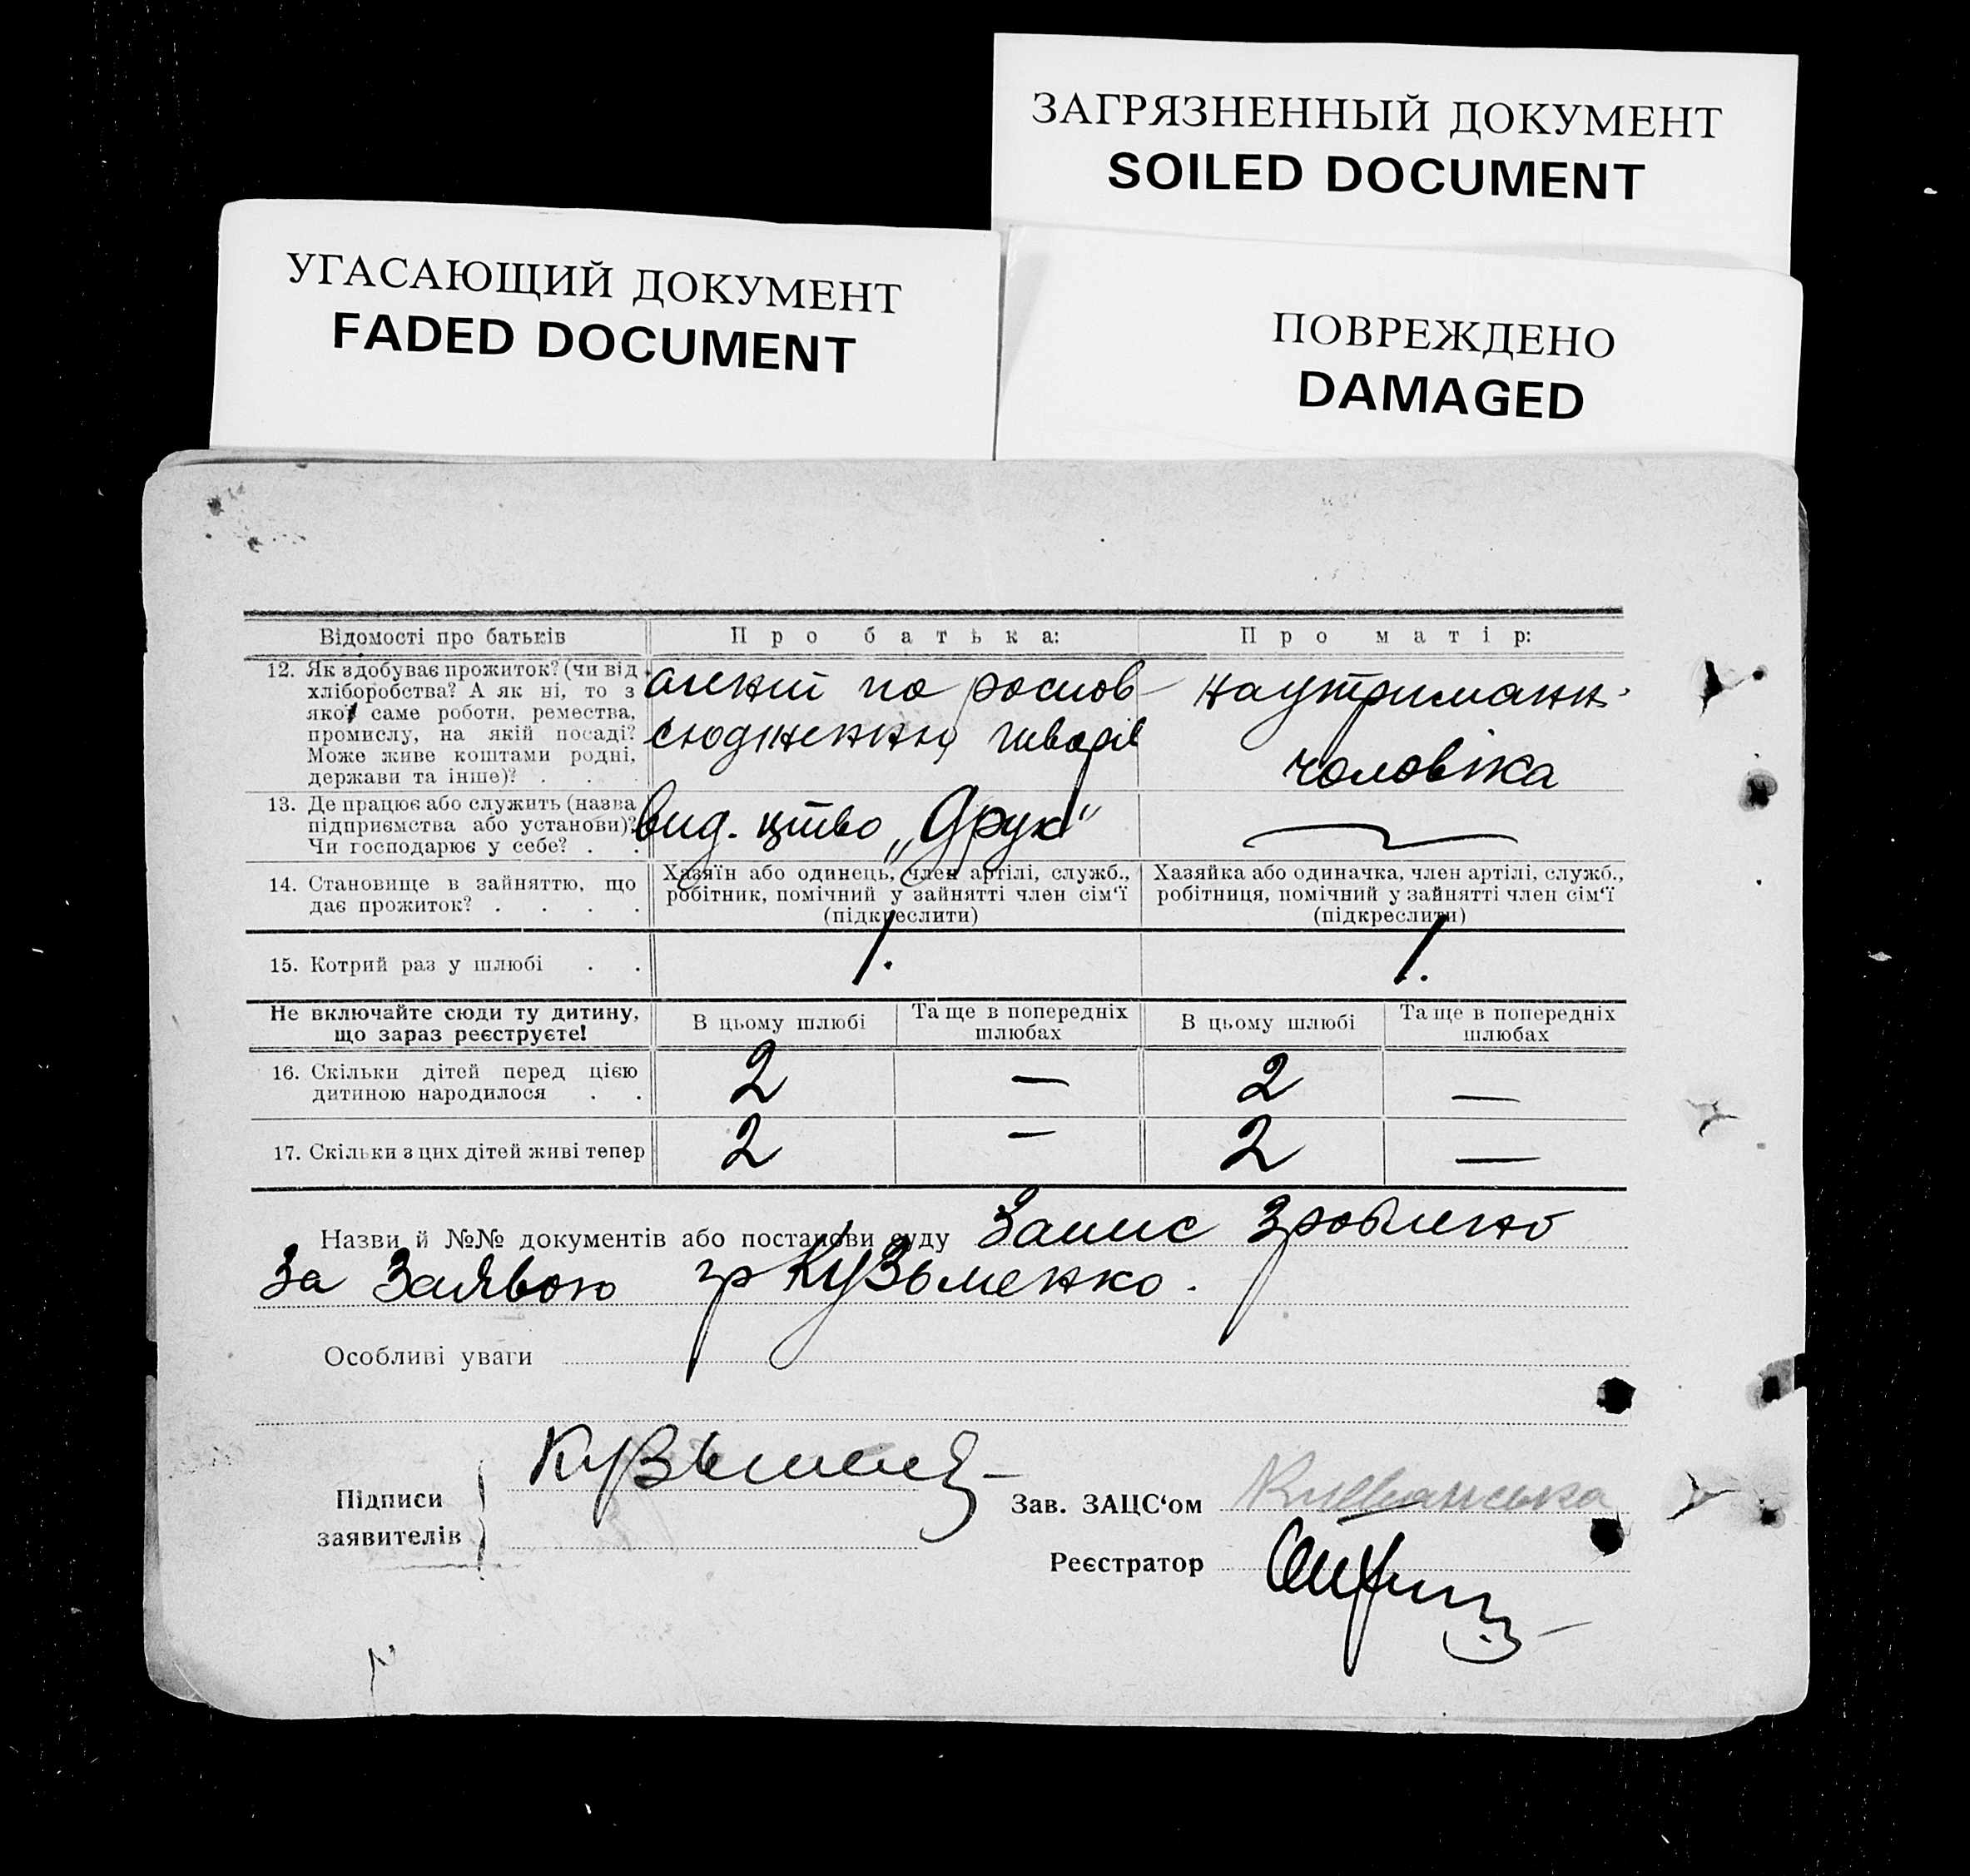 ЗАГРЯЗНЕННЫЙ ДОКУМЕНТ
SOILED DOCUMENT
УГАСАЮЩИЙ ДОКУМЕНТ
FADED DOCUMENT
ПОВРЕЖДЕНО
DAMAGED
Відомості про батьків
Про батька:
Про матір:
12. Як здобуває прожиток? (чи від
хліборобства? А як ні, то з
якої саме роботи, ремества,
промислу, на якій посаді?
Може живе коштами родні,
держави та інше)? . . .
агент по росповсюдженню
на утриманн.
чоловіка
13. Де працює або служить (назва
підприємства або установи)?
Чи господарює у себе? . .
вид. цтво „Друк"
14. Становище в зайняттю, що
дає прожиток? . . . .
Хазяїн або одинець, член артілі, служб.,
робітник, помічний у зайнятті член сім'ї
(підкреслити)
Хазяйка або одиначка, член артілі, служб.,
робітниця, помічний у зайнятті член сім'ї
(підкреслити)
15. Котрий раз у шлюбі . .
1.
1.
Не включайте сюди ту дитину,
що зараз реєструєте!
В цьому шлюбі
Та ще в попередніх
шлюбах
В цьому шлюбі
Та ще в попередніх
шлюбах
16. Скільки дітей перед цією
дитиною народилося . .
2 — 2 —
17. Скільки з цих дітей живі тепер
2 — 2 —
Назви й №№ документів або постанови суду Запис зроблено
за заявою гр Кузьменко.
Особливі уваги
Підписи
заявителів
Зав. ЗАЦС'ом
Реєстратор